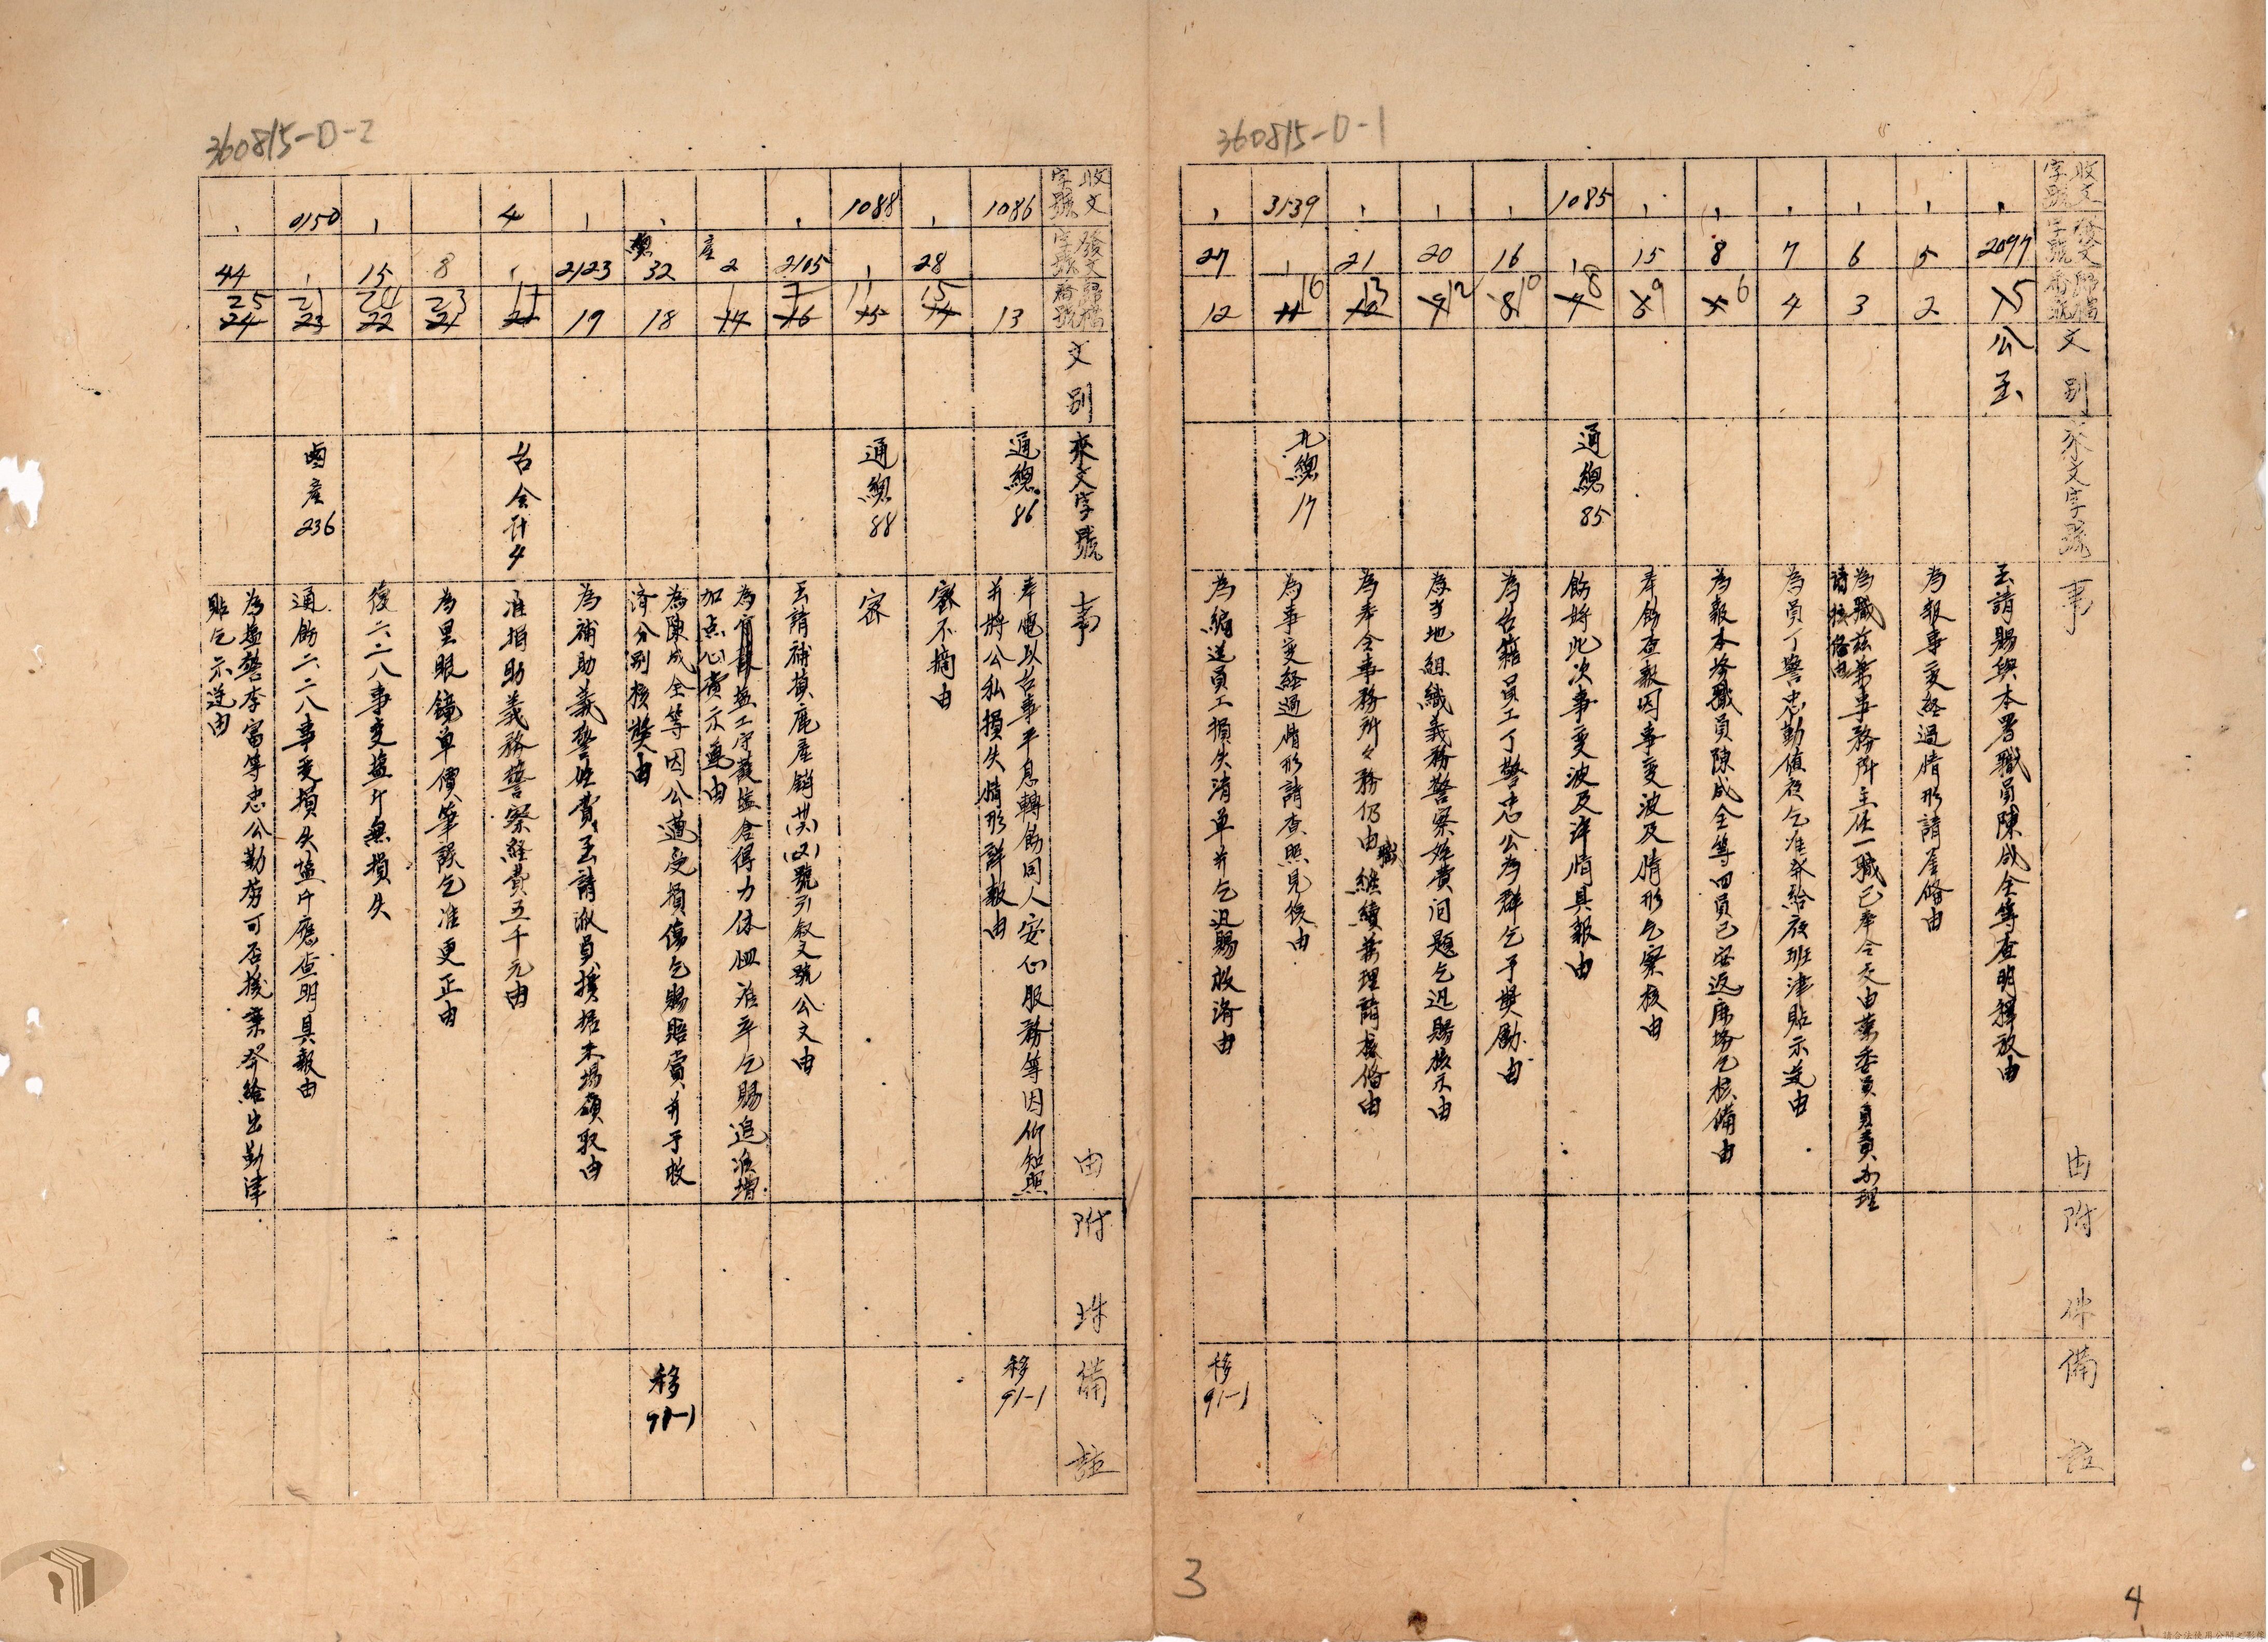 360815-D-1
收文字號
發文字號
歸檔番號
文別
來文字號
事由
附件
備註
2097
5
公函
函請賜與本署職員陳成全等查明釋放由
5
2
為報事變經過情形請鑒俻由
6
3
為職茲兼事務所主任一職已奉令交由葉委員負責办理
請核俻由
7
4
為員丁警忠勤值夜乞准發給夜班津貼示遵由
8
6
為報本塲職員陳成全等四員已安返庽塲乞核備由
15
9
奉飭查報因事變波及情形乞察核由
1085
8
通總85
飭將此次事變波及詳情具報由
16
10
為台籍員工丁警忠公為群乞予獎勵由
20
12
為當地組織義務警察經費问題乞迅賜核示由
21
13
為奉令事務所々務仍由職繼續兼理請核俻由
3139
16
九總17
為事變経過情形請查照見復由
27
12
為編送員工損失清單并乞迅賜救濟由
移
91-1
3
4
360815-D-2
收文字號
發文字號
歸檔番號
文別
來文字號
事由
附珠
備註
1086
13
通總86
奉電以台事平息轉飭同人安心服務等因仰知照
并將公私損失情形詳報由
移
91-1
28
15
密不摘由
1088
11
通總88
密
2105
函請補損鹿產銷(芇)(又)號引敘文號公文由
產2
加点心費示遵由
32
18
為陳成全等因公遭受損傷乞賜賠賞并予救
濟分別核獎由
移
91-1
2123
19
為補助義警經費函請派員携据本場領取由
4
台会計4
准捐助義務警察経費五千元由
8
23
為里眼鏡单價筆誤乞准更正由
15
復二、二八事变塩斤無損失
0150
21
鹵產236
通飭二、二八事变損失塩斤應查明具報由
44
25
為塩警李富等忠公勤劳可否援案發給出勤津
貼乞示遵由